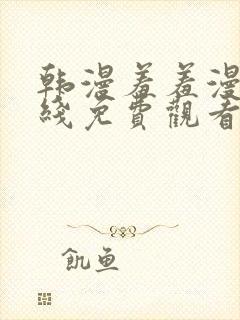 韩漫羞羞漫
线免費觀看
飢鱼